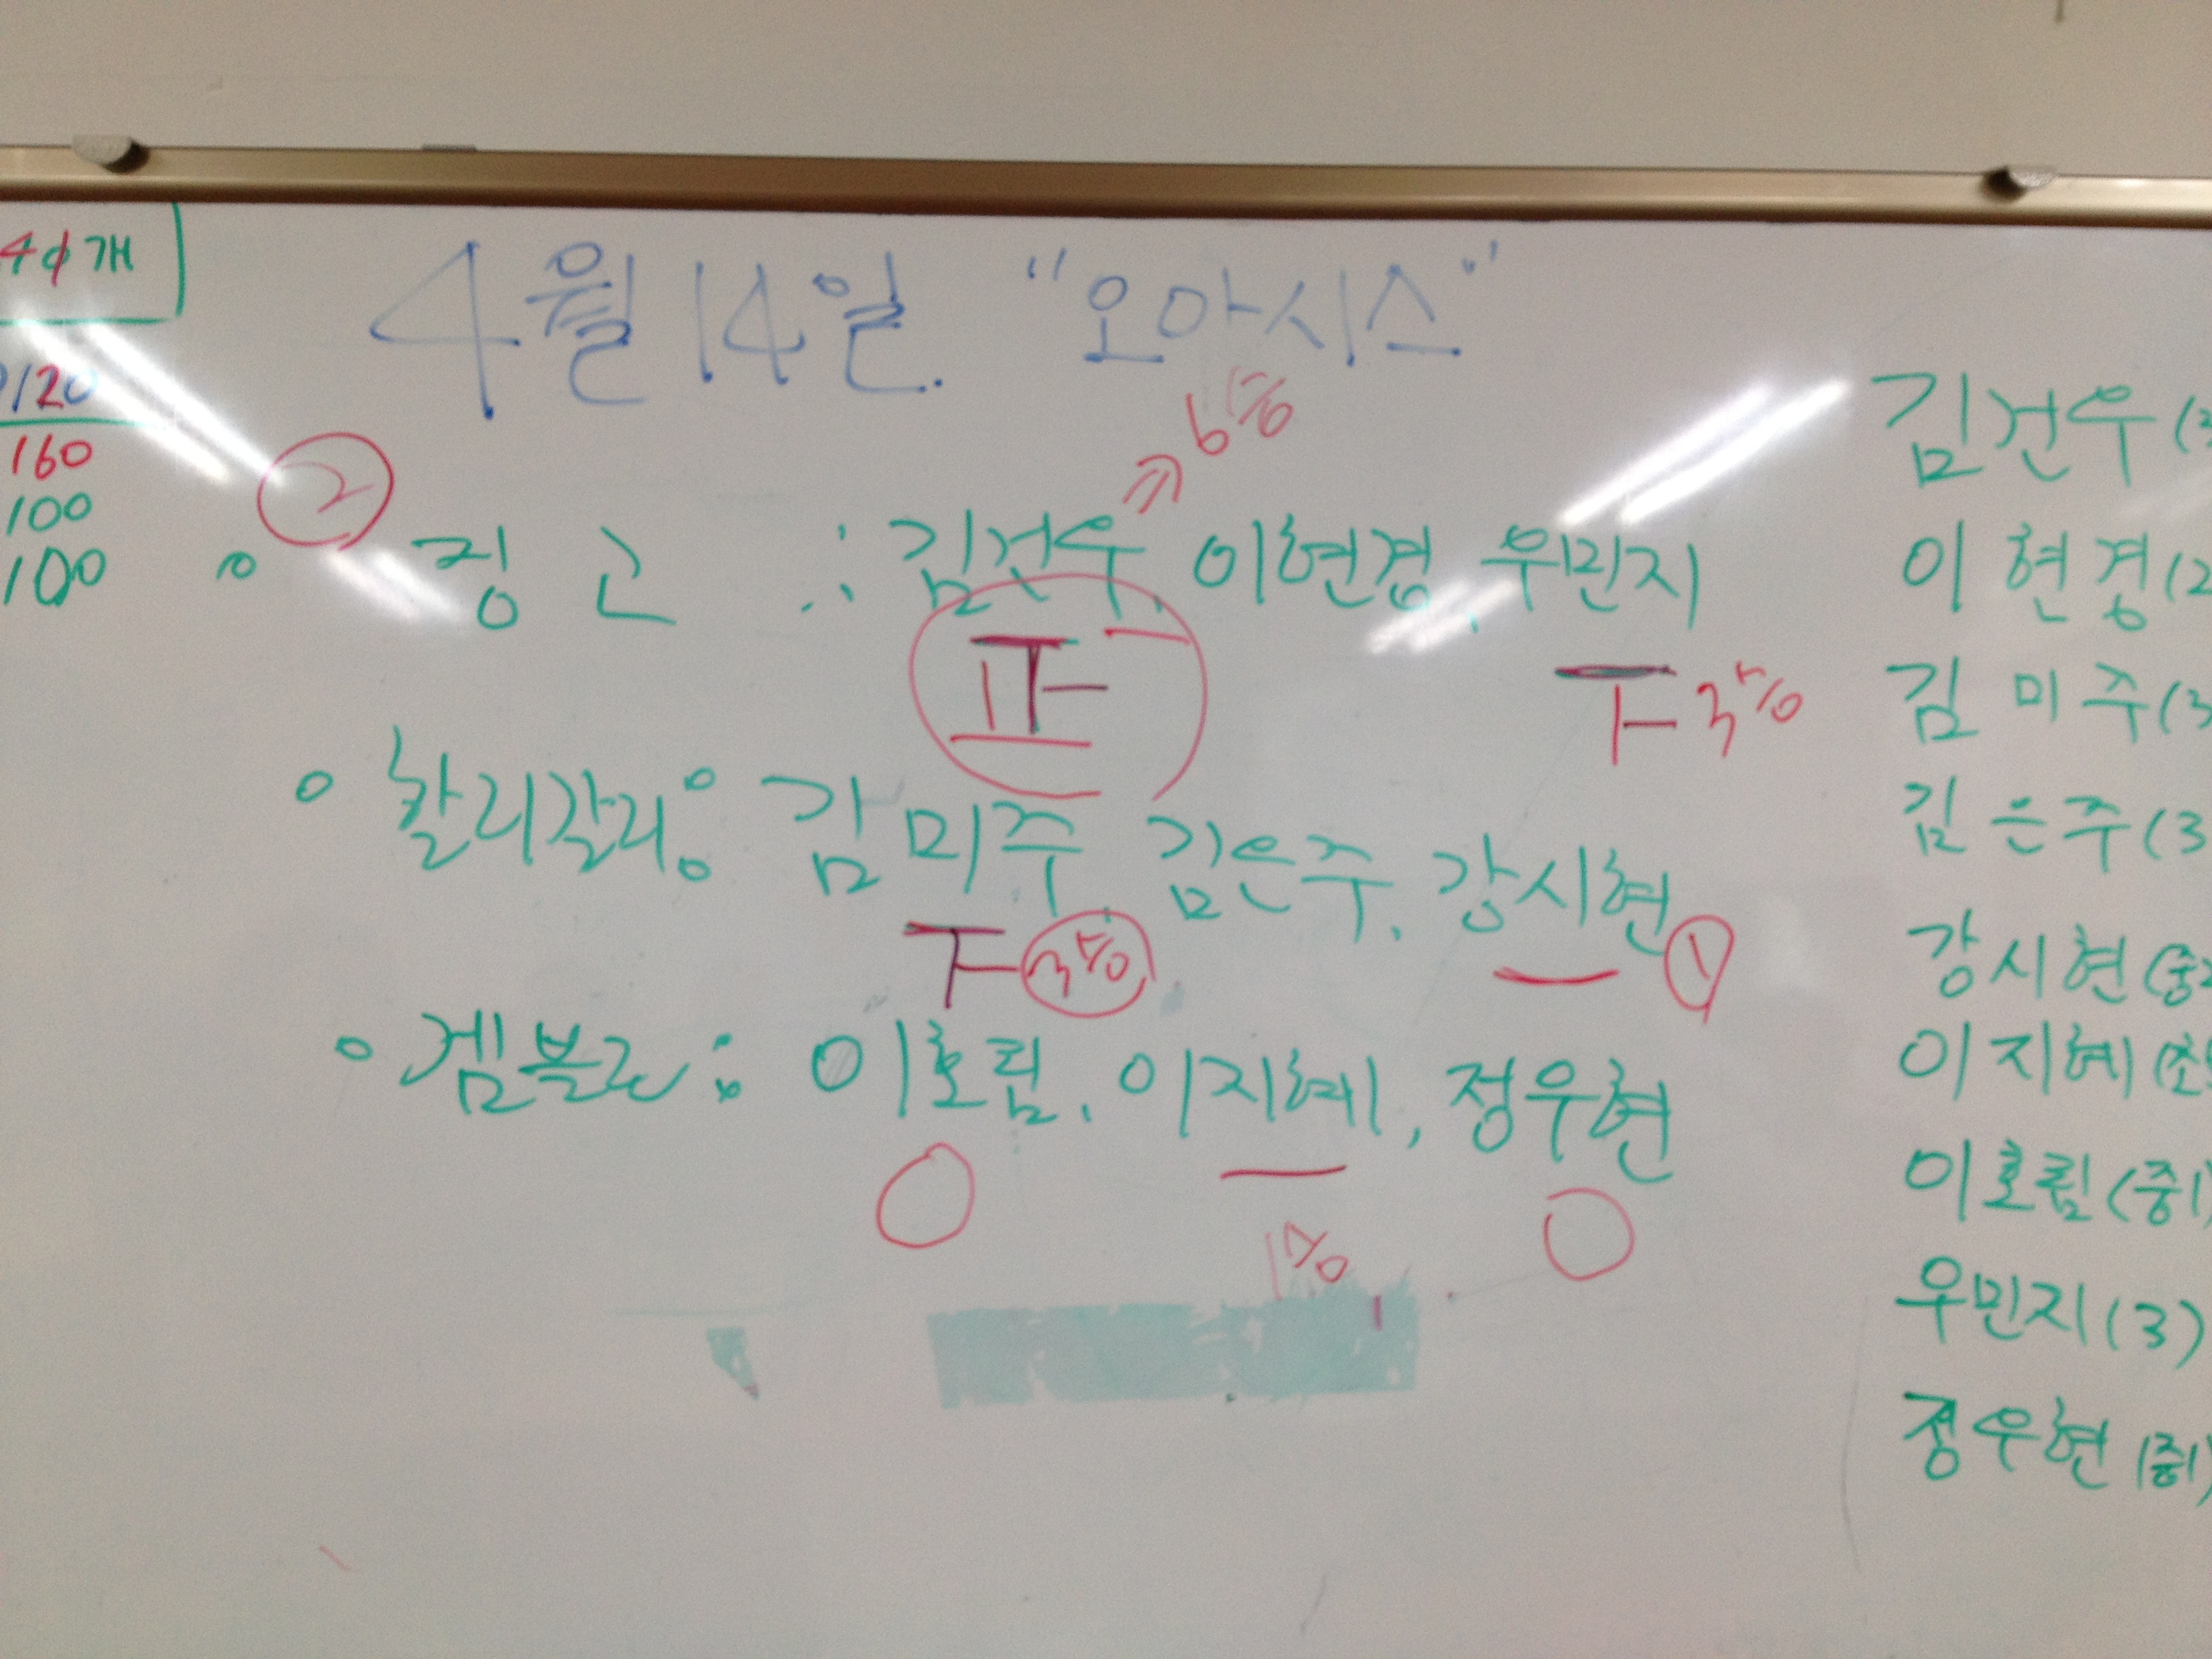 4월 14일. "오아시스"
개
120
160
100
100
②
6%
징고 : 김건우, 이현경, 우민지
正一
下 3%
할리갈리 : 김미주, 김은주, 강시현
下 3%
一 ①
겜블로 : 이호림, 이지혜, 정우현
一
1%
김건우 (3
이현경 (2
김미주 (3
김은주 (3
강시현 (중2
이지혜 (초
이호림 (중1)
우민지 (3)
정우현 (중1)